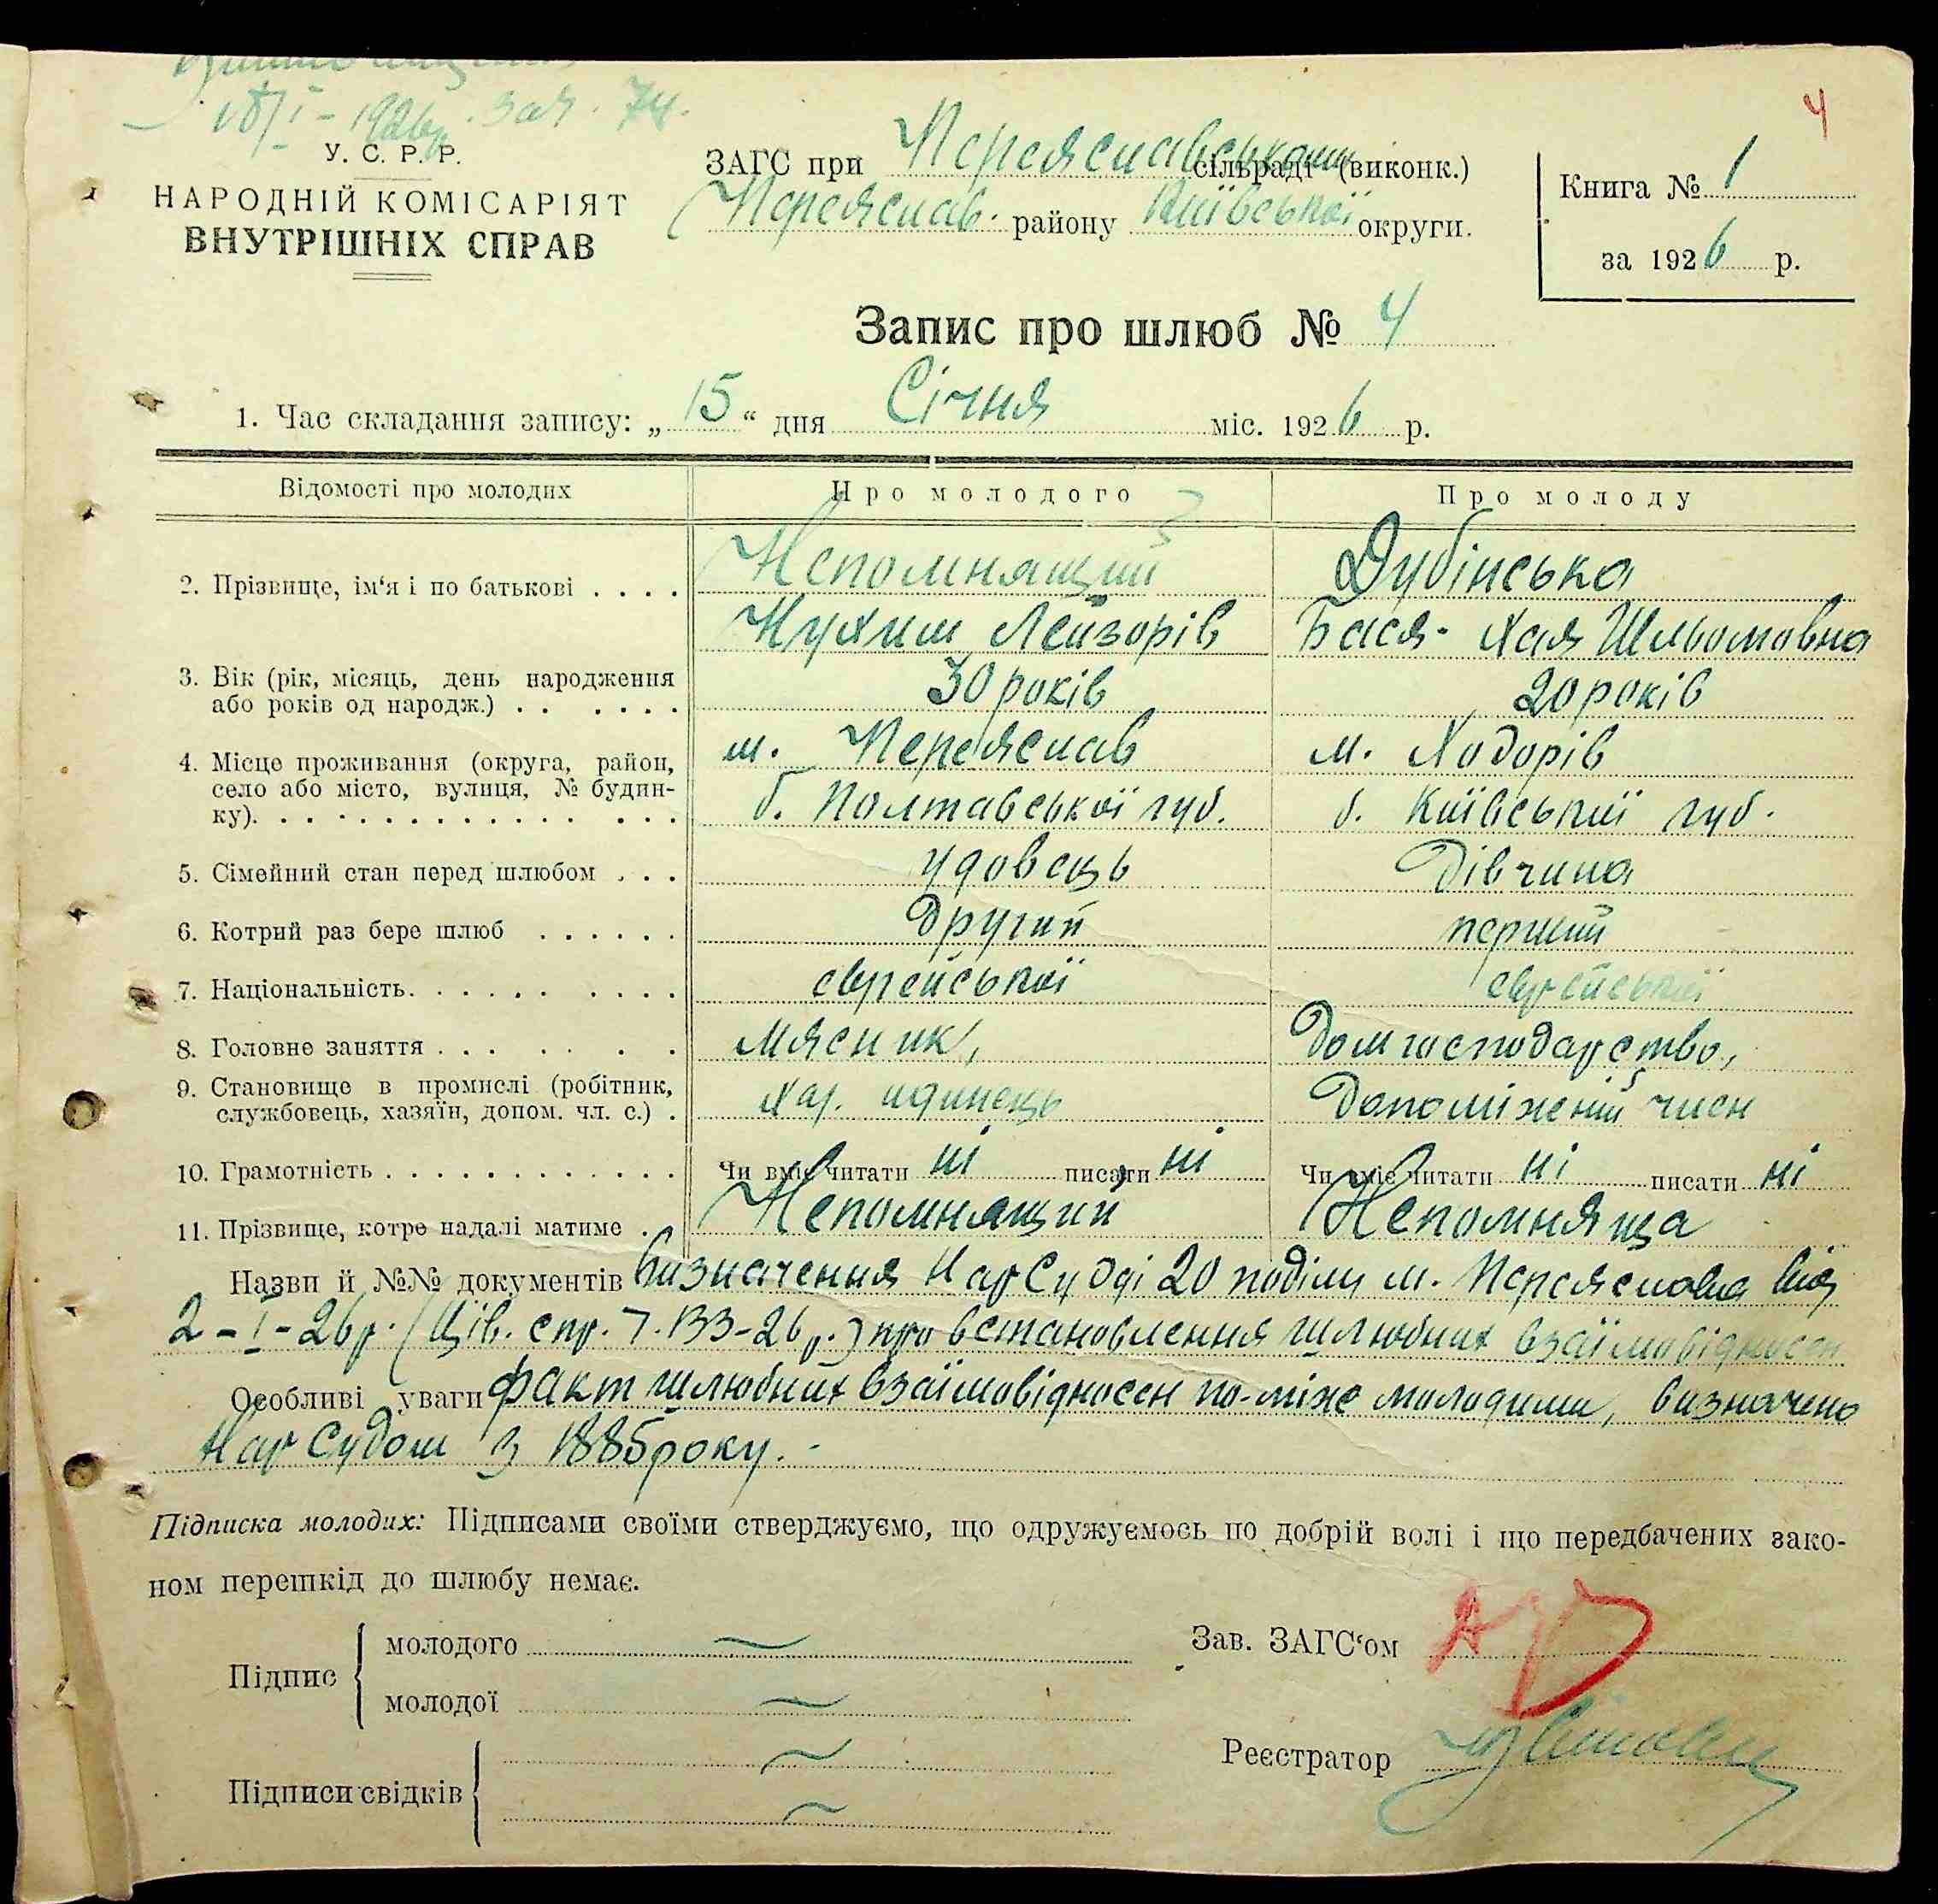 18/I – 1926р. зая. 74.
4
У. С. Р. Р.
НАРОДНІЙ КОМІСАРІЯТ
ВНУТРІШНІХ СПРАВ
ЗАГС при Переяславському сільраді (виконк.)
Переяслав. району Київської округи.
Книга № 1
за 1926 р.
Запис про шлюб № 4
1. Час складання запису: „15“ дня Січня міс. 1926 р.
Відомості про молодих Про молодого Про молоду
2. Прізвище, ім‘я і по батькові . . . . Непомнящий Дубінська
Нухим Лейзорів Бася-Хая Шльомовна
3. Вік (рік, місяць, день народження
або років од народж.) . . . . . . 30 років 20 років
4. Місце проживання (округа, район, м. Переяслав м. Ходорів
село або місто, вулиця, № будин-
ку). . . . . . . . . . . . . . . . б. Полтавської губ. б. Київської губ.
5. Сімейний стан перед шлюбом . . . удовець дівчина
6. Котрий раз бере шлюб . . . . . . другий перший
7. Національність. . . . . . . . . . єврейської єврейської
8. Головне заняття . . . . . . . мясник, Домгосподарство,
9. Становище в промислі (робітник,
службовець, хазяїн, допом. чл. с.) . Хаз. одинець Допоміжний член
10. Грамотність . . . . . . . . . . . . Чи вміє читати ні писати ні Чи вміє читати ні писати ні
11. Прізвище, котре надалі матиме . Непомнящий Непомняща
Назви й №№ документів Визначення НарСуду 20 поділу м. Переяслова від
2–I–26р. (Ців. спр. 7.133–26р.) про встановлення шлюбних взаїмовідносен
Особливі уваги факт шлюбних взаїмовідносен по-між молодими, визначено
НарСудом з 1885 року. –
Підписка молодих: Підписами своїми стверджуємо, що одружуємось по добрій волі і що передбачених зако-
ном перешкід до шлюбу немає.
Підпис
молодого
молодої
Зав. ЗАГС‘ом
Реєстратор
Підписи свідків